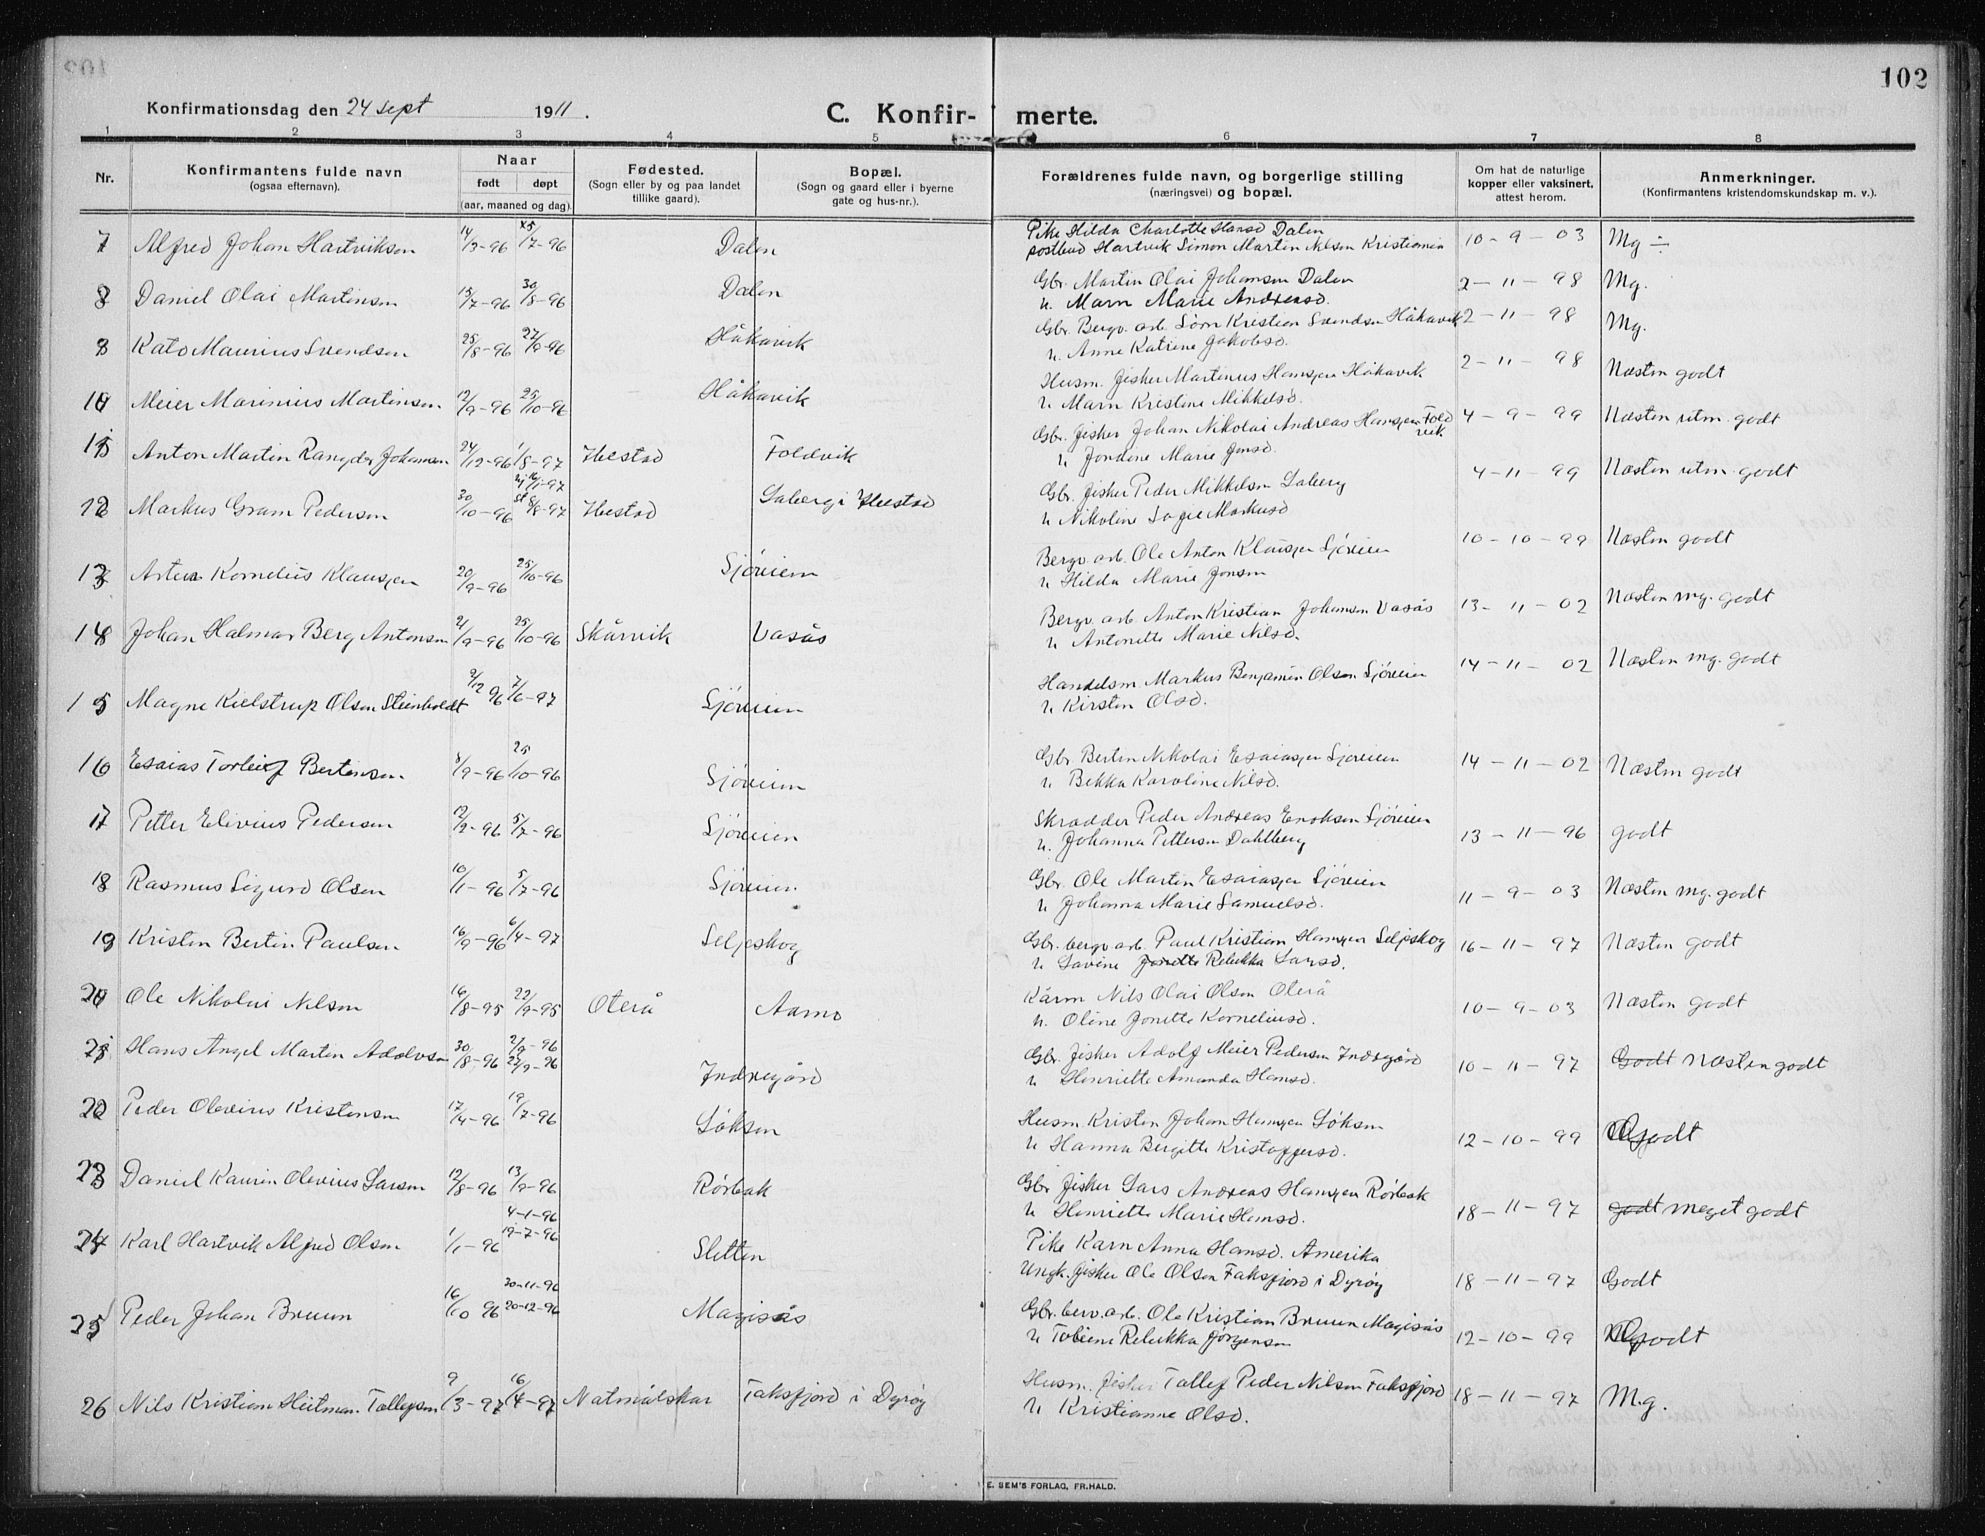 102
Konfirmationsdag den 24 sept 1911.
C. Konfir- merte.
1 2 3 4 5 6 7 8
Nr.
Konfirmantens fulde navn
(ogsaa efternavn).
Naar
født døpt
(aar, maaned og dag).
Fødested.
(Sogn eller by og paa landet
tillike gaard).
Bopæl.
(Sogn og gaard eller i byerne
gate og hus-nr.).
Forældrenes fulde navn, og borgerlige stilling
(næringsvei) og bopæl.
Om hat de naturlige
kopper eller vaksinert,
attest herom.
Anmerkninger.
(Konfirmantens kristendomskundskap m. v.).
7 Alfred Johan Hartviksen 14/3-96 25/7-96 Dalen
Pike Hilda Charlotte Hansd Dalen
postbud Hartvik Simon Martin Nilsen Kristiania 10-9-03 Mg ÷
8 Daniel Olai Martinsen 15/7-96 30/8-96 Dalen
Gbr. Martin Olai Johansen Dalen 2-11-98 Mg.
u. Marn Marie Andreasd.
9 Kato Maurius Svendsen 25/8-96 27/9-96 Håkavik
Gbr. Bergv. arb. Sörn Kristian Svendsen Håkavik 2-11-98 Mg.
u. Anne Katrine Jakobsd.
10 Meier Marinius Martinsen 12/9-96 25/10-96 Håkavik
Husm. fisker Martinus Hansen Håkavik 2-11-98 Næsten godt
u. Marn Kristine Mikkelsd.
11 Anton Martin Rangder Johansen 24/12-96 1/8-97 Ibestad Foldvik
Gbr. fisker Johan Nikolai Andreas Hansen Foldvik 4-9-99 Næsten utm. godt
u. Jondine Marie Jonsd.
12 Markus Gram Pedersen 30/10-96 8/8-97 Ibestad Laberg i Ibestad
Gbr. fisker Peder Mikkelsen Laberg 4-11-99 Næsten utm. godt
u. Nikoline Markusd
13 Kornelius Klausen 20/9-96 25/10-96 Sjöveien
Bergv. arb. Ole Anton Klausen Sjöveien 10-10-99 Næsten godt
u. Hilda Marie Jonsen
14 Johan Halmar Berg Antonsen 21/9-96 25/10-96 Skårvik Vasås
Bergv. arb. Anton Kristian Johansen Vasås 13-11-02 Næsten mg. godt
u. Antonette Marie Nilsd.
15 Magne Kielstrup Olsen Steinholdt 9/12 96 7/6-97 Sjöveien
Handelsm Markus Benjamin Olsen Sjöveien 14-11-02 Næsten mg. godt
u. Kirsten Olsd.
16 Esaias Torleif Bertinsen 8/9-96 25/10-96 Sjöveien
Gbr Bertin Nikolai Esaiasen Sjöveien 14-11-02 Næsten godt
u. Bekka Karoline Nilsd.
17 Petter Elivius Pedersen 12/2-96 5/7-96 Sjöveien
Skrædder Peder Andreas Enoksen Sjöveien 13-11-96 godt
u. Johanna Pettersen Dahlberg
18 Rasmus Sigurd Olsen 10/1-96 5/7-96 Sjöveien
Gbr. Ole Martin Esaiasen Sjöveien 11-9-03 Næsten mg. godt
u Johanna Marie Samuelsd.
19 Kristen Bertin Paulsen 16/9-96 6/4-97 Seljeskog
Gbr. bergv. arb. Paul Kristian Hansen Seljeskog 16-11-97 Næsten godt
u Lovine Jonette Rebekka Larsd.
20 Ole Nikolai Nilsen 16/8-95 22/9-95 Oterå Aarno
Kårm Nils Olai Olsen Oterå 10-9-03 Næsten godt
u. Oline Jonette Korneliusd.
21 Hans Angel Martin Adolvsen 30/8-96 2/9-96 27/9-96 Indregård
Gbr. fisker Adolf Meier Pedersen Indregård 10-11-97 Godt Næsten godt
u Henriette Amanda Hansd.
22 Peder Olevius Kristensen 17/4-96 19/7-96 Löksen
Husm Kristen Johan Hansen Löksen 12-10-99 Godt
u Hanna Bergitte Kristoffersd.
23 Daniel Kaurin Olevius Larsen 12/8-96 13/9-96 Rörbak
Gbr fisker Lars Andreas Hansen Rörbak 18-11-97 godt meget godt
u Henriette Marie Hansd.
24 Karl Hartvik Alfred Olsen 1/1-96 4-1-96 19-7-96 Sletten
Pike Karn Anna Hansd. Amerika
Ungk. fisker Ole Olsen Faksfjord i Dyröy 18-11-97 Godt
25 Peder Johan Bruun 16/10 96 30-11-96 20-12-96 Magisås
Gbr. berv. arb. Ole Kristian Bruun Magisås 12-10-99 Godt
u Tobine Rebekka Jörgensen
26 Nils Kristian Heitman Tollefsen 9/3-97 16/4-97 Natmålskar Faksfjord i Dyröy
Husm. fisker Tollef Peder Nilsen Faksfjord 18-11-97 M.g.
u Kristianne Olsd.
E. SEM'S FORLAG, FR.HALD.